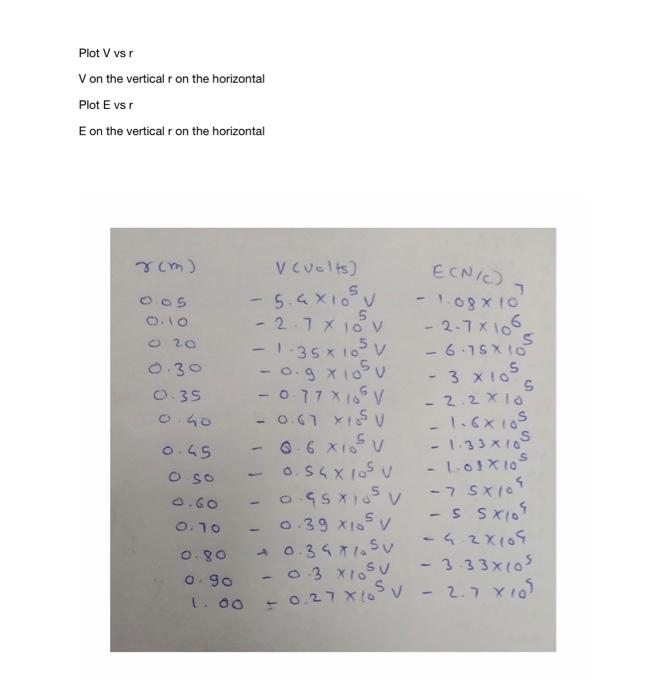 Plot V vs r
V on the vertical r on the horizontal
Plot E vs r
E on the vertical r on the horizontal
r(m) V(volts) E(N/C)
0.05 - 5.4 × 10^5 V - 1.08 × 10^7
0.10 - 2.7 × 10^5 V - 2.7 × 10^6
0.20 - 1.35 × 10^5 V - 6.75 × 10^5
0.30 - 0.9 × 10^5 V - 3 × 10^5
0.35 - 0.77 × 10^5 V - 2.2 × 10^5
0.40 - 0.67 × 10^5 V - 1.6 × 10^5
0.45 - 0.6 × 10^5 V - 1.33 × 10^5
0.50 - 0.54 × 10^5 V - 1.08 × 10^5
0.60 - 0.45 × 10^5 V - 7.5 × 10^4
0.70 - 0.39 × 10^5 V - 5.5 × 10^4
0.80 - 0.34 × 10^5 V - 4.2 × 10^4
0.90 - 0.3 × 10^5 V - 3.33 × 10^5
1.00 - 0.27 × 10^5 V - 2.7 × 10^4